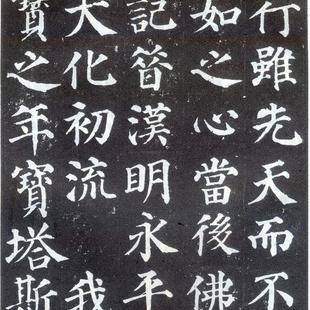 行雖先天而不
如之心當後佛
記昔漢明永平
大化初流我
寶之年寶塔斯